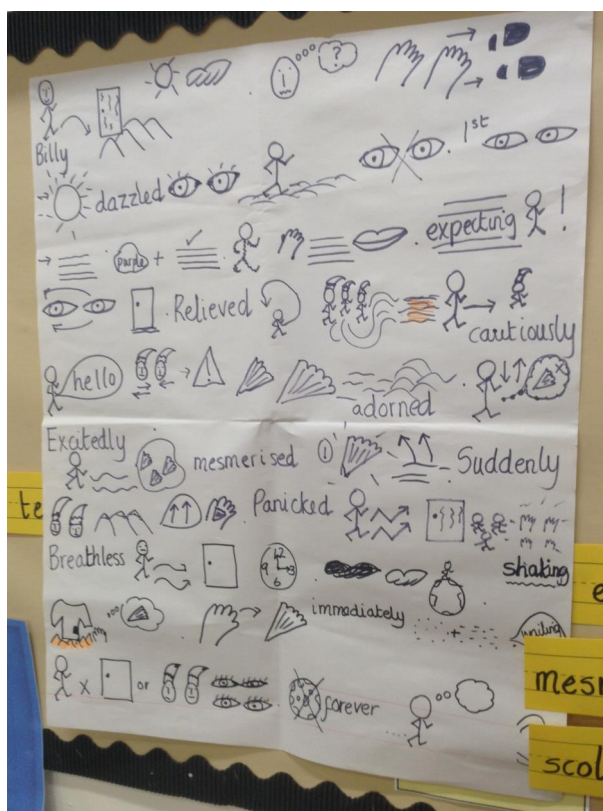 ?
Billy
1st
dazzled
purple + expecting !
Relieved
cautiously
hello !
adorned
Excitedly mesmerised Suddenly
te
Panicked
Breathless 12 3 6 9 shaking
e
immediately
+ smiling
x or forever
mes
scol